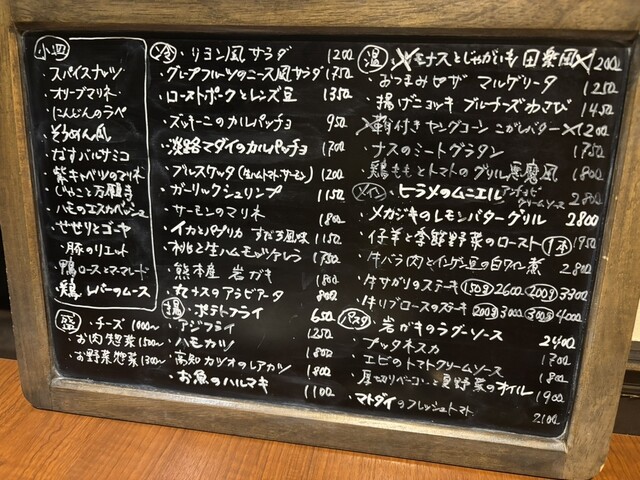 小皿
・スパイスナッツ
・オリーブマリネ
・にんじんのラペ
・そうめん風
・なすバルサミコ
・紫キャベツのマリネ
・じゃこと万願寺
・ハモのエスカベッシュ
・せせりとゴーヤ
・豚のリエット
・鴨ロースとママレード
・鶏レバーのムース
盛 ・チーズ 1000〜
・お肉惣菜 1500〜
・お野菜惣菜 1300〜
冷 ・リヨン風サラダ 1200
・グレープフルーツのニース風サラダ 1750
・ローストポークとレンズ豆 1350
・ズッキーニのカルパッチョ 950
・淡路マダイのカルパッチョ 1700
・ブルスケッタ (生ハム・トマト・サーモン) 1200
・ガーリックシュリンプ 1150
・サーモンのマリネ 1800
・イカとパプリカ すだち風味 1150
・桃と生ハムモッツァレラ 1750
・熊本産 岩がき 1800
・丸ナスのアラビアータ 1800
揚 ・ポテトフライ 650
・アジフライ 1250
・ハモカツ 1800
・高知カツオのレアカツ 1800
・お魚のハルマキ 1100
温 ナスとじゃがいも 田楽風 1200
・おつまみピザ マルゲリータ 1250
・揚げニョッキ ブルーチーズわさび 1450
鞘付きヤングコーン こがしバター 1200
・ナスのミートグラタン 1750
・鶏ももとトマトのグリル 1800
メイン ・ヒラメのムニエル アンチョビクリームソース 2800
・メカジキのレモンバターグリル 2800
・仔羊と季節野菜のロースト 1本 1950
・牛バラ肉とインゲン豆の白ワイン煮 2800
・牛サガリのステーキ 150g 2600 200g 3300
・牛リブロースのステーキ 200g 3000 300g 4000
パスタ ・岩がきのラグーソース 2400
・プッタネスカ 1700
・エビのトマトクリームソース 1800
・厚切りベーコンと夏野菜のオイル 1900
・マトダイのフレッシュトマト 2100